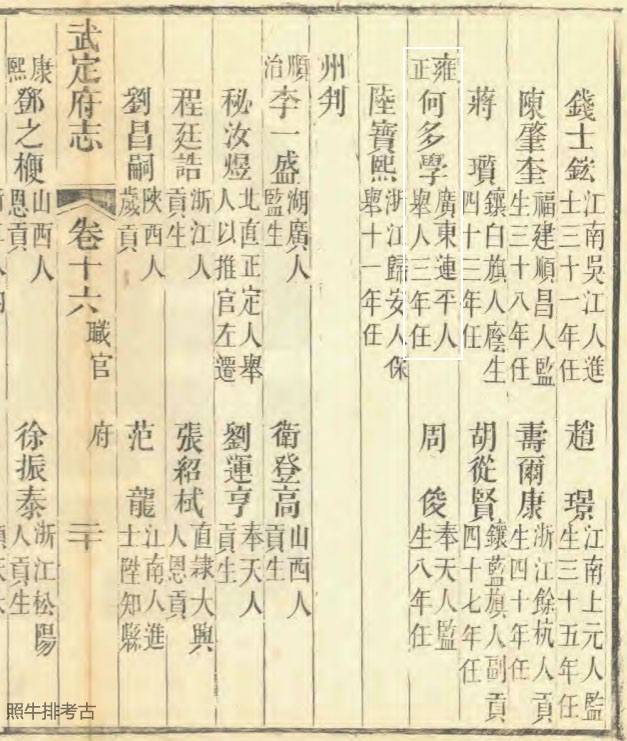 錢士鋐江南吳江人進士三十一年任
趙璟江南上元人監生三十五年任
陳肇奎福建順昌人監生三十八年任
壽爾康浙江餘杭人貢生四十年任
蔣瓚鑲白旗人廕生四十三年任
胡從賢鑲藍旗人副貢四十七年任
雍正何多學廣東連平人舉人三年任
周俊奉天人監生八年任
陸寶熙浙江歸安人保舉十一年任
州判
順治李一盛湖廣人監生
衛登高山西人貢生
秘汝煜北直正定人舉人以推官左遷
劉運亨奉天人貢生
程廷誥浙江人貢生
張紹栻直隸大興人恩貢
劉昌嗣陝西人歲貢
范龍江南人進士陞知縣
武定府志卷十六職官府二十
康熙鄧之楩山西人恩貢
徐振泰浙江松陽人貢生
照牛排考古